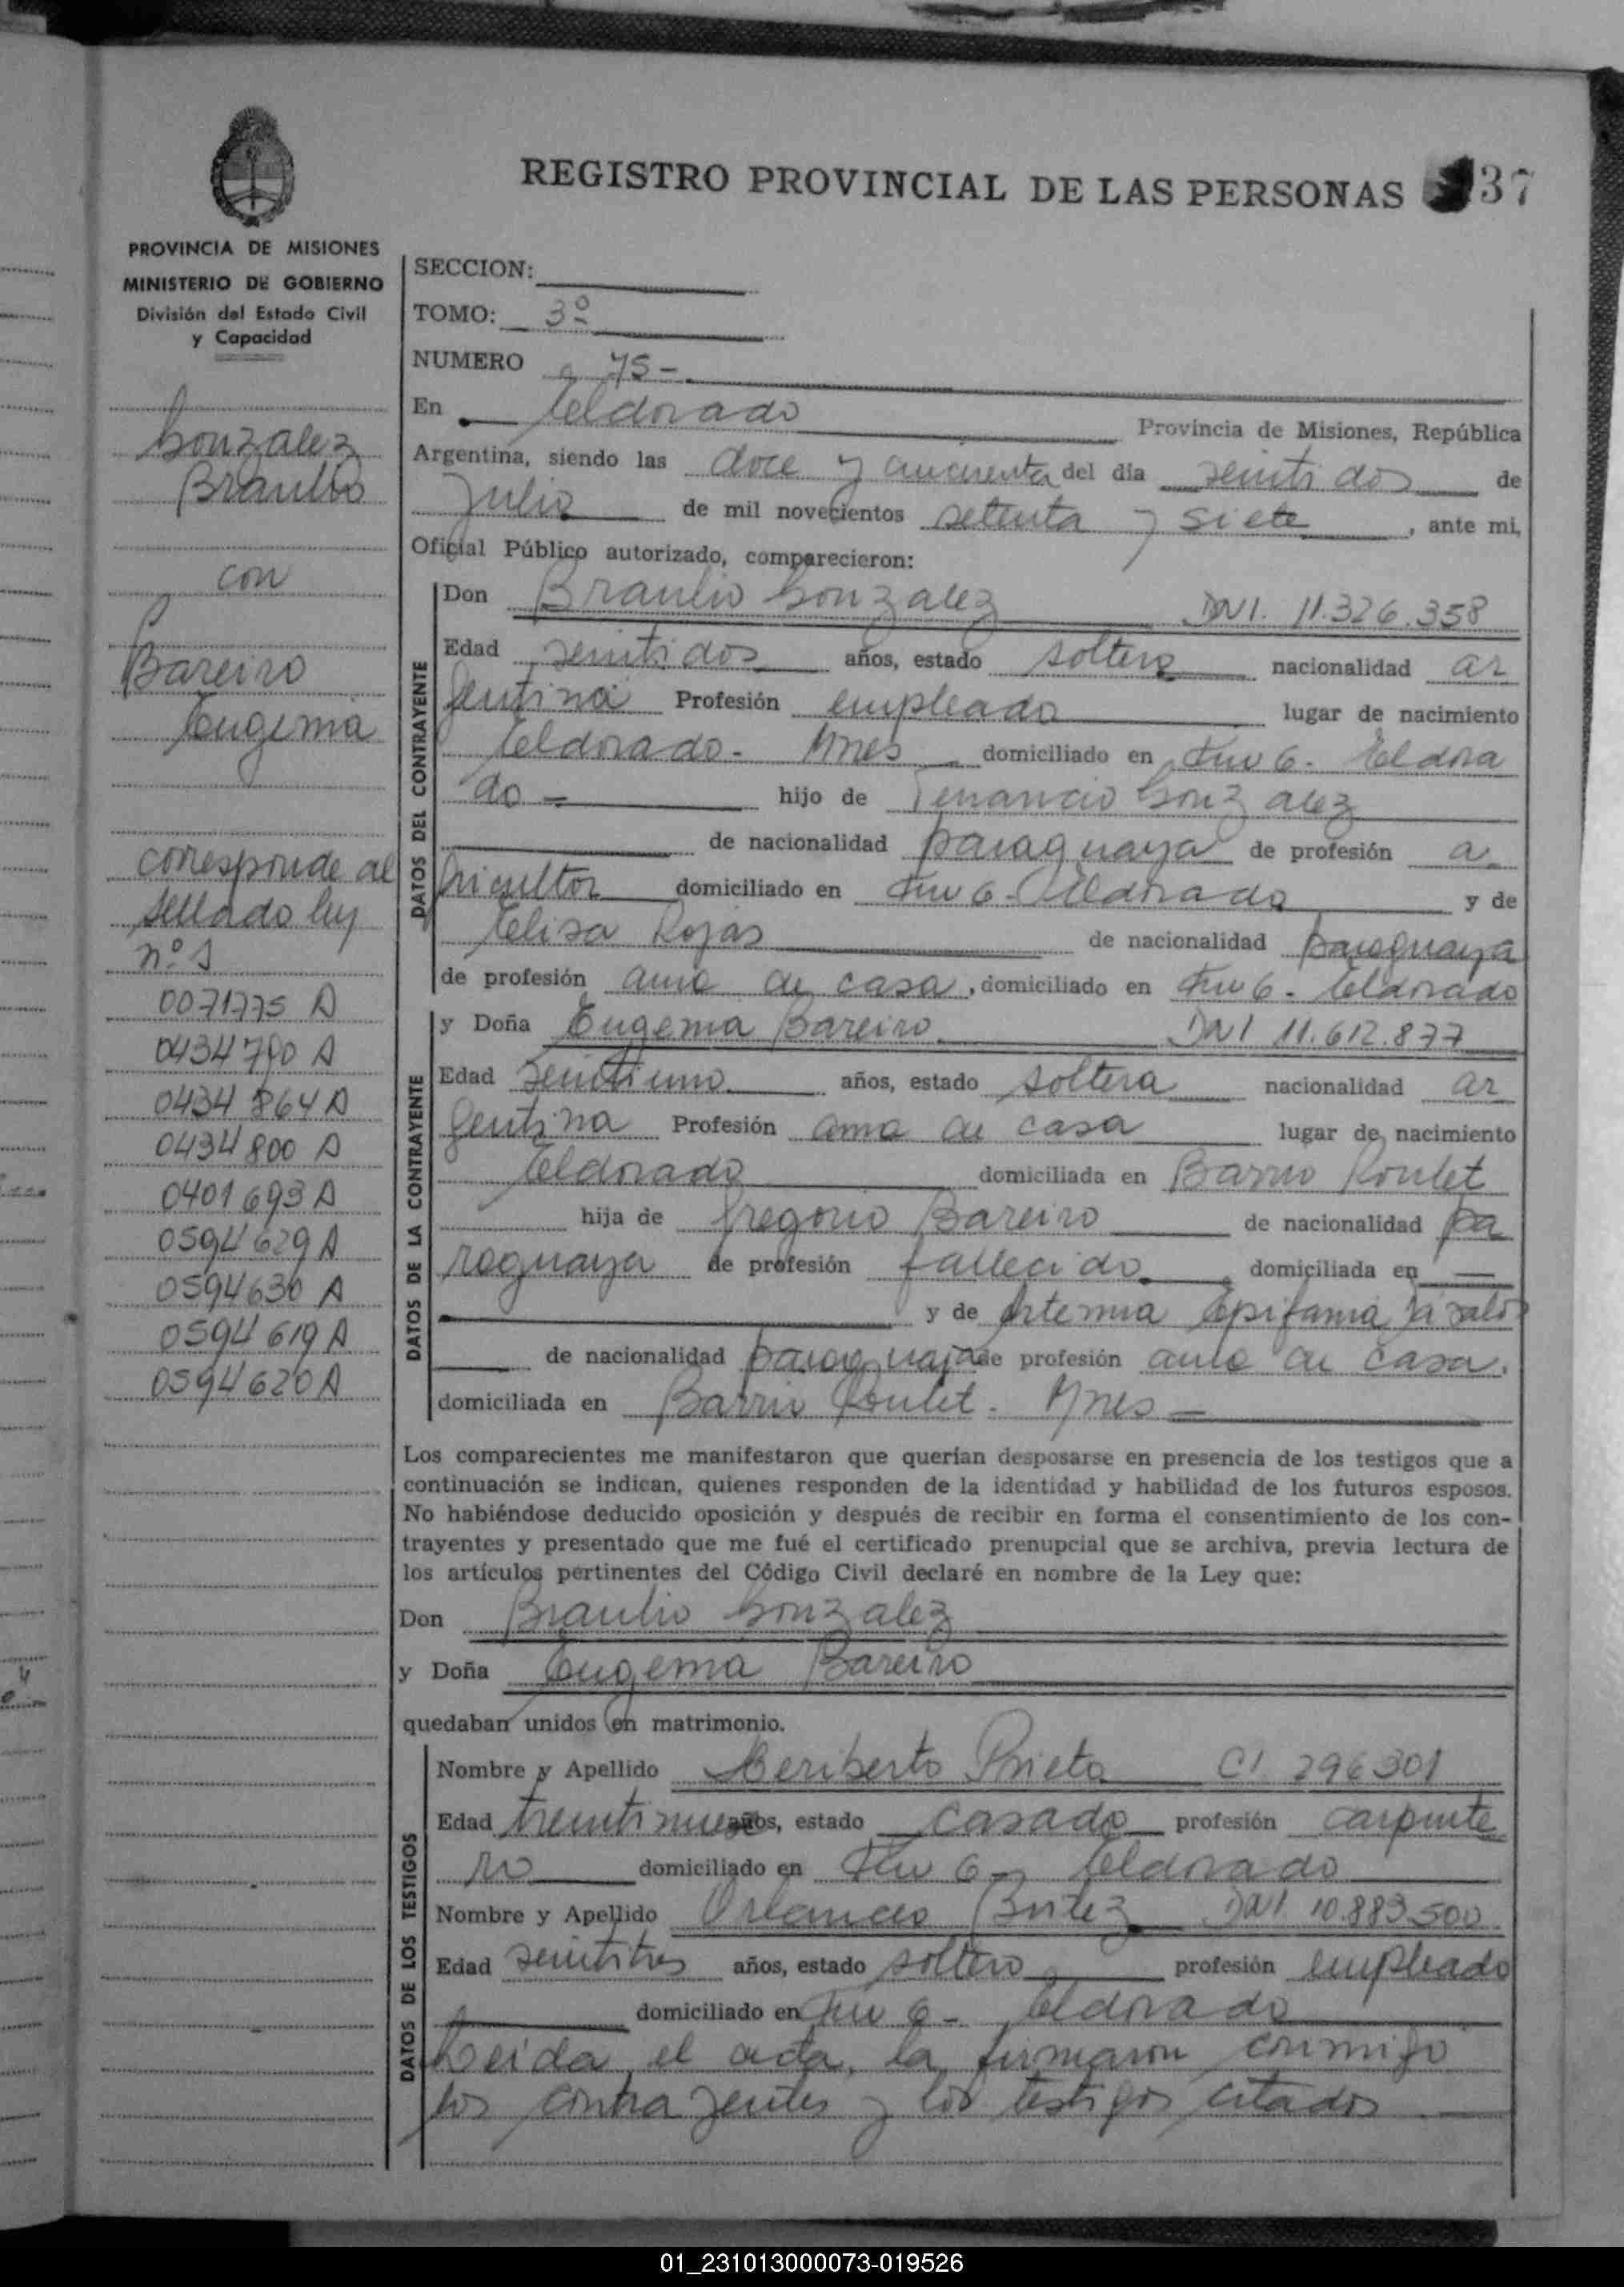 REGISTRO PROVINCIAL DE LAS PERSONAS 37
PROVINCIA DE MISIONES
MINISTERIO DE GOBIERNO
División del Estado Civil
y Capacidad
Gonzalez
Braulio
con
Bareiro
Eugenia
corresponde al
sellado ley
nº 1
0071775 A
0434790 A
0434864 A
0434800 A
0401693 A
0594629 A
0594630 A
0594619 A
0594620 A
SECCION:
TOMO: 3º
NUMERO 75-
En Eldorado Provincia de Misiones, República
Argentina, siendo las doce y cincuenta del día veinti dos de
Julio de mil novecientos setenta y siete, ante mi,
Oficial Público autorizado, comparecieron:
DATOS DEL CONTRAYENTE
Don Braulio Gonzalez DNI. 11.326.358
Edad veinti dos años, estado soltero nacionalidad ar
gentina Profesión empleado lugar de nacimiento
Eldorado - Mnes domiciliado en Km 6 - Eldora
do = hijo de Venancio Gonzalez
de nacionalidad paraguaya de profesión a
gricultor domiciliado en Km 6 - Eldorado y de
Elisa Rojas de nacionalidad paraguaya
de profesión ama de casa, domiciliado en Km 6 - Eldorado
DATOS DE LA CONTRAYENTE
y Doña Eugenia Bareiro DNI 11.612.877
Edad veintiuno años, estado soltera nacionalidad ar
gentina Profesión ama de casa lugar de nacimiento
Eldorado domiciliada en Barrio Roulet
hija de Gregorio Bareiro de nacionalidad pa
raguaya de profesión fallecido domiciliada en —
y de Artemia Epifania
de nacionalidad paraguaya de profesión ama de casa.
domiciliada en Barrio Roulet. Mnes =
Los comparecientes me manifestaron que querían desposarse en presencia de los testigos que a
continuación se indican, quienes responden de la identidad y habilidad de los futuros esposos.
No habiéndose deducido oposición y después de recibir en forma el consentimiento de los con-
trayentes y presentado que me fué el certificado prenupcial que se archiva, previa lectura de
los artículos pertinentes del Código Civil declaré en nombre de la Ley que:
Don Braulio Gonzalez
y Doña Eugenia Bareiro
quedaban unidos en matrimonio.
DATOS DE LOS TESTIGOS
Nombre y Apellido Heriberto Prieto CI 296301
Edad treintinueve años, estado casado profesión carpinte
ro domiciliado en Km 6 - Eldorado
Nombre y Apellido Orlando Britez DNI 10.883.500
Edad veintitres años, estado soltero profesión empleado
domiciliado en Km 6 - Eldorado
Leida el acta, la firmaron conmigo
los contrayentes y los testigos citados
01_231013000073-019526